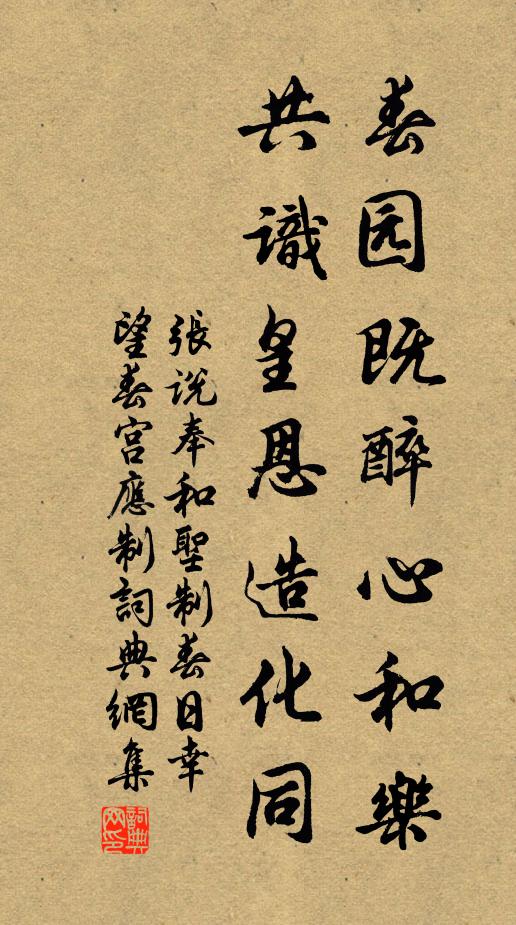 春园既醉心和樂
共識皇恩造化同
張説奉和聖制春日幸
望春宫應制詞典網集
詞典网印